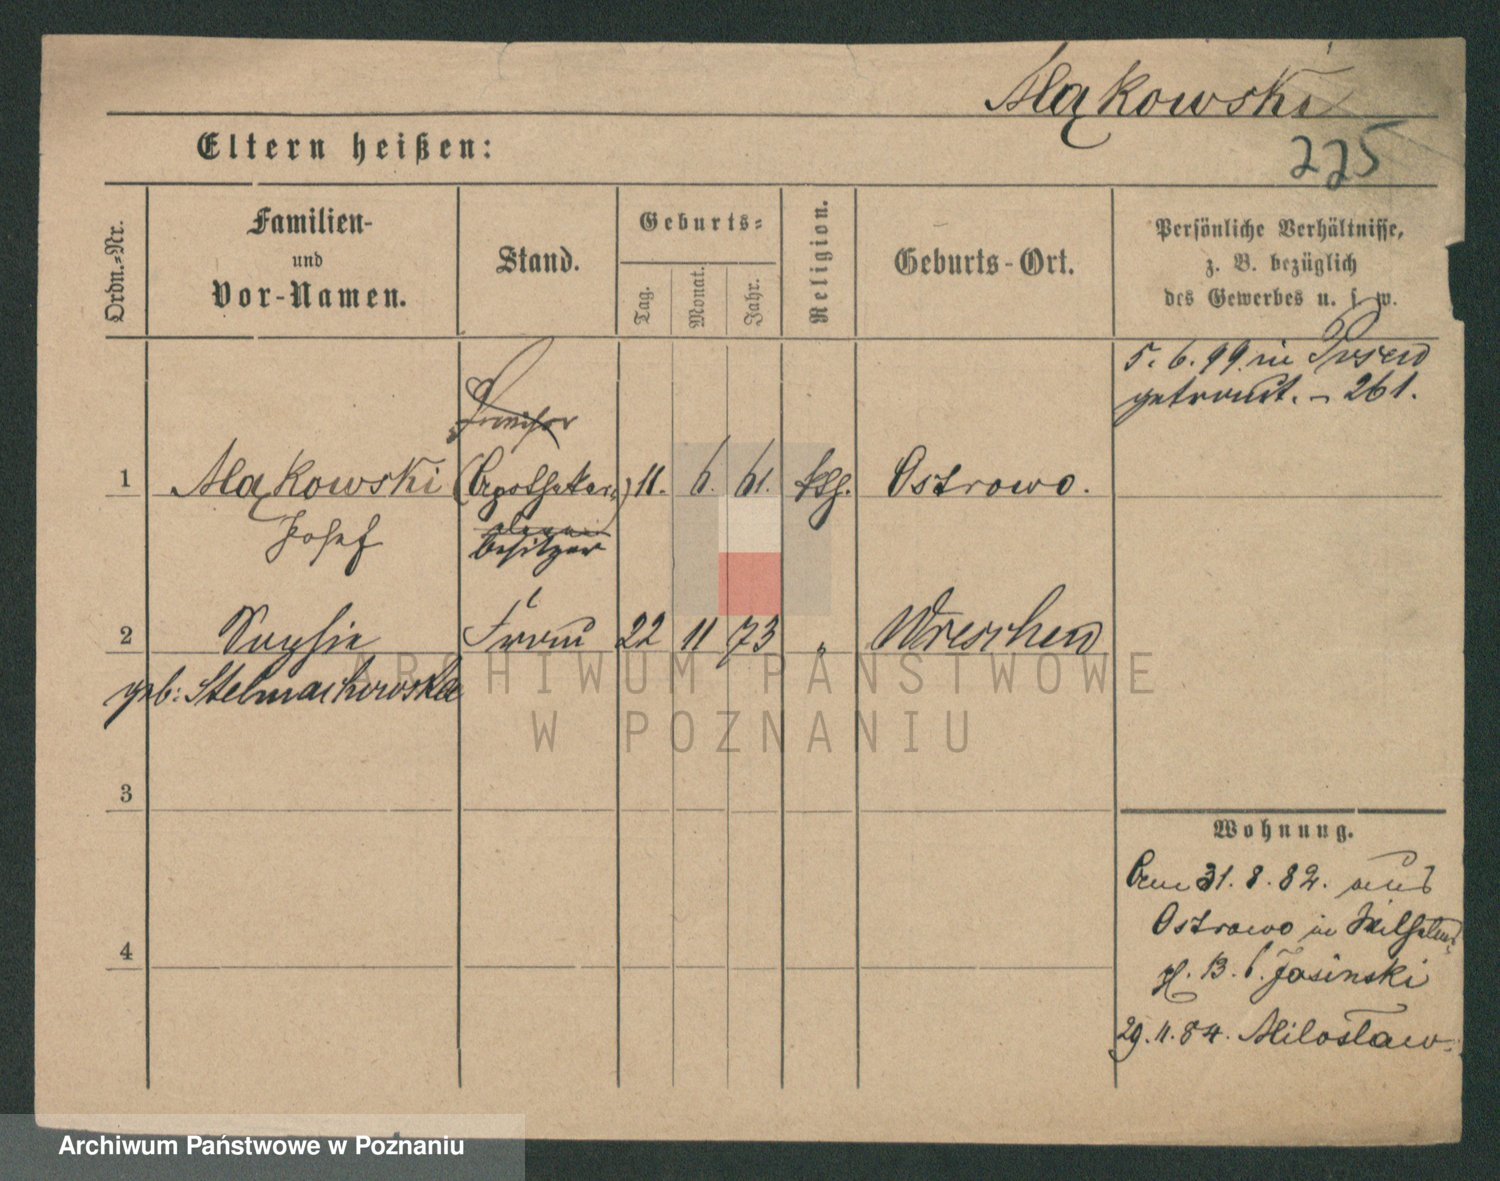 Mąkowski
225
Eltern heißen:
Ordn.-Nr.
Familien-
und
Vor-Namen.
Stand.
Geburts-
Tag.
Monat.
Jahr.
Religion.
Geburts-Ort.
Persönliche Verhältnisse,
z. B. bezüglich
des Gewerbes u. s w.
5. 6. 99 in Posen
getraut. - 261.
1
Mąkowski
(Apotheken)
11.
6.
61.
kth.
Ostrowo.
Josef
besitzer
2
Sophie
Frau
22
11
73
"
Wreschen
geb: Stelmachowska
3
4
Wohnung.
31. 8. 82. aus
Ostrowo in Wilhelms
Jasinski
29. 11. 84. Miloslaw
ARCHIWUM PAŃSTWOWE
W POZNANIU
Archiwum Państwowe w Poznaniu